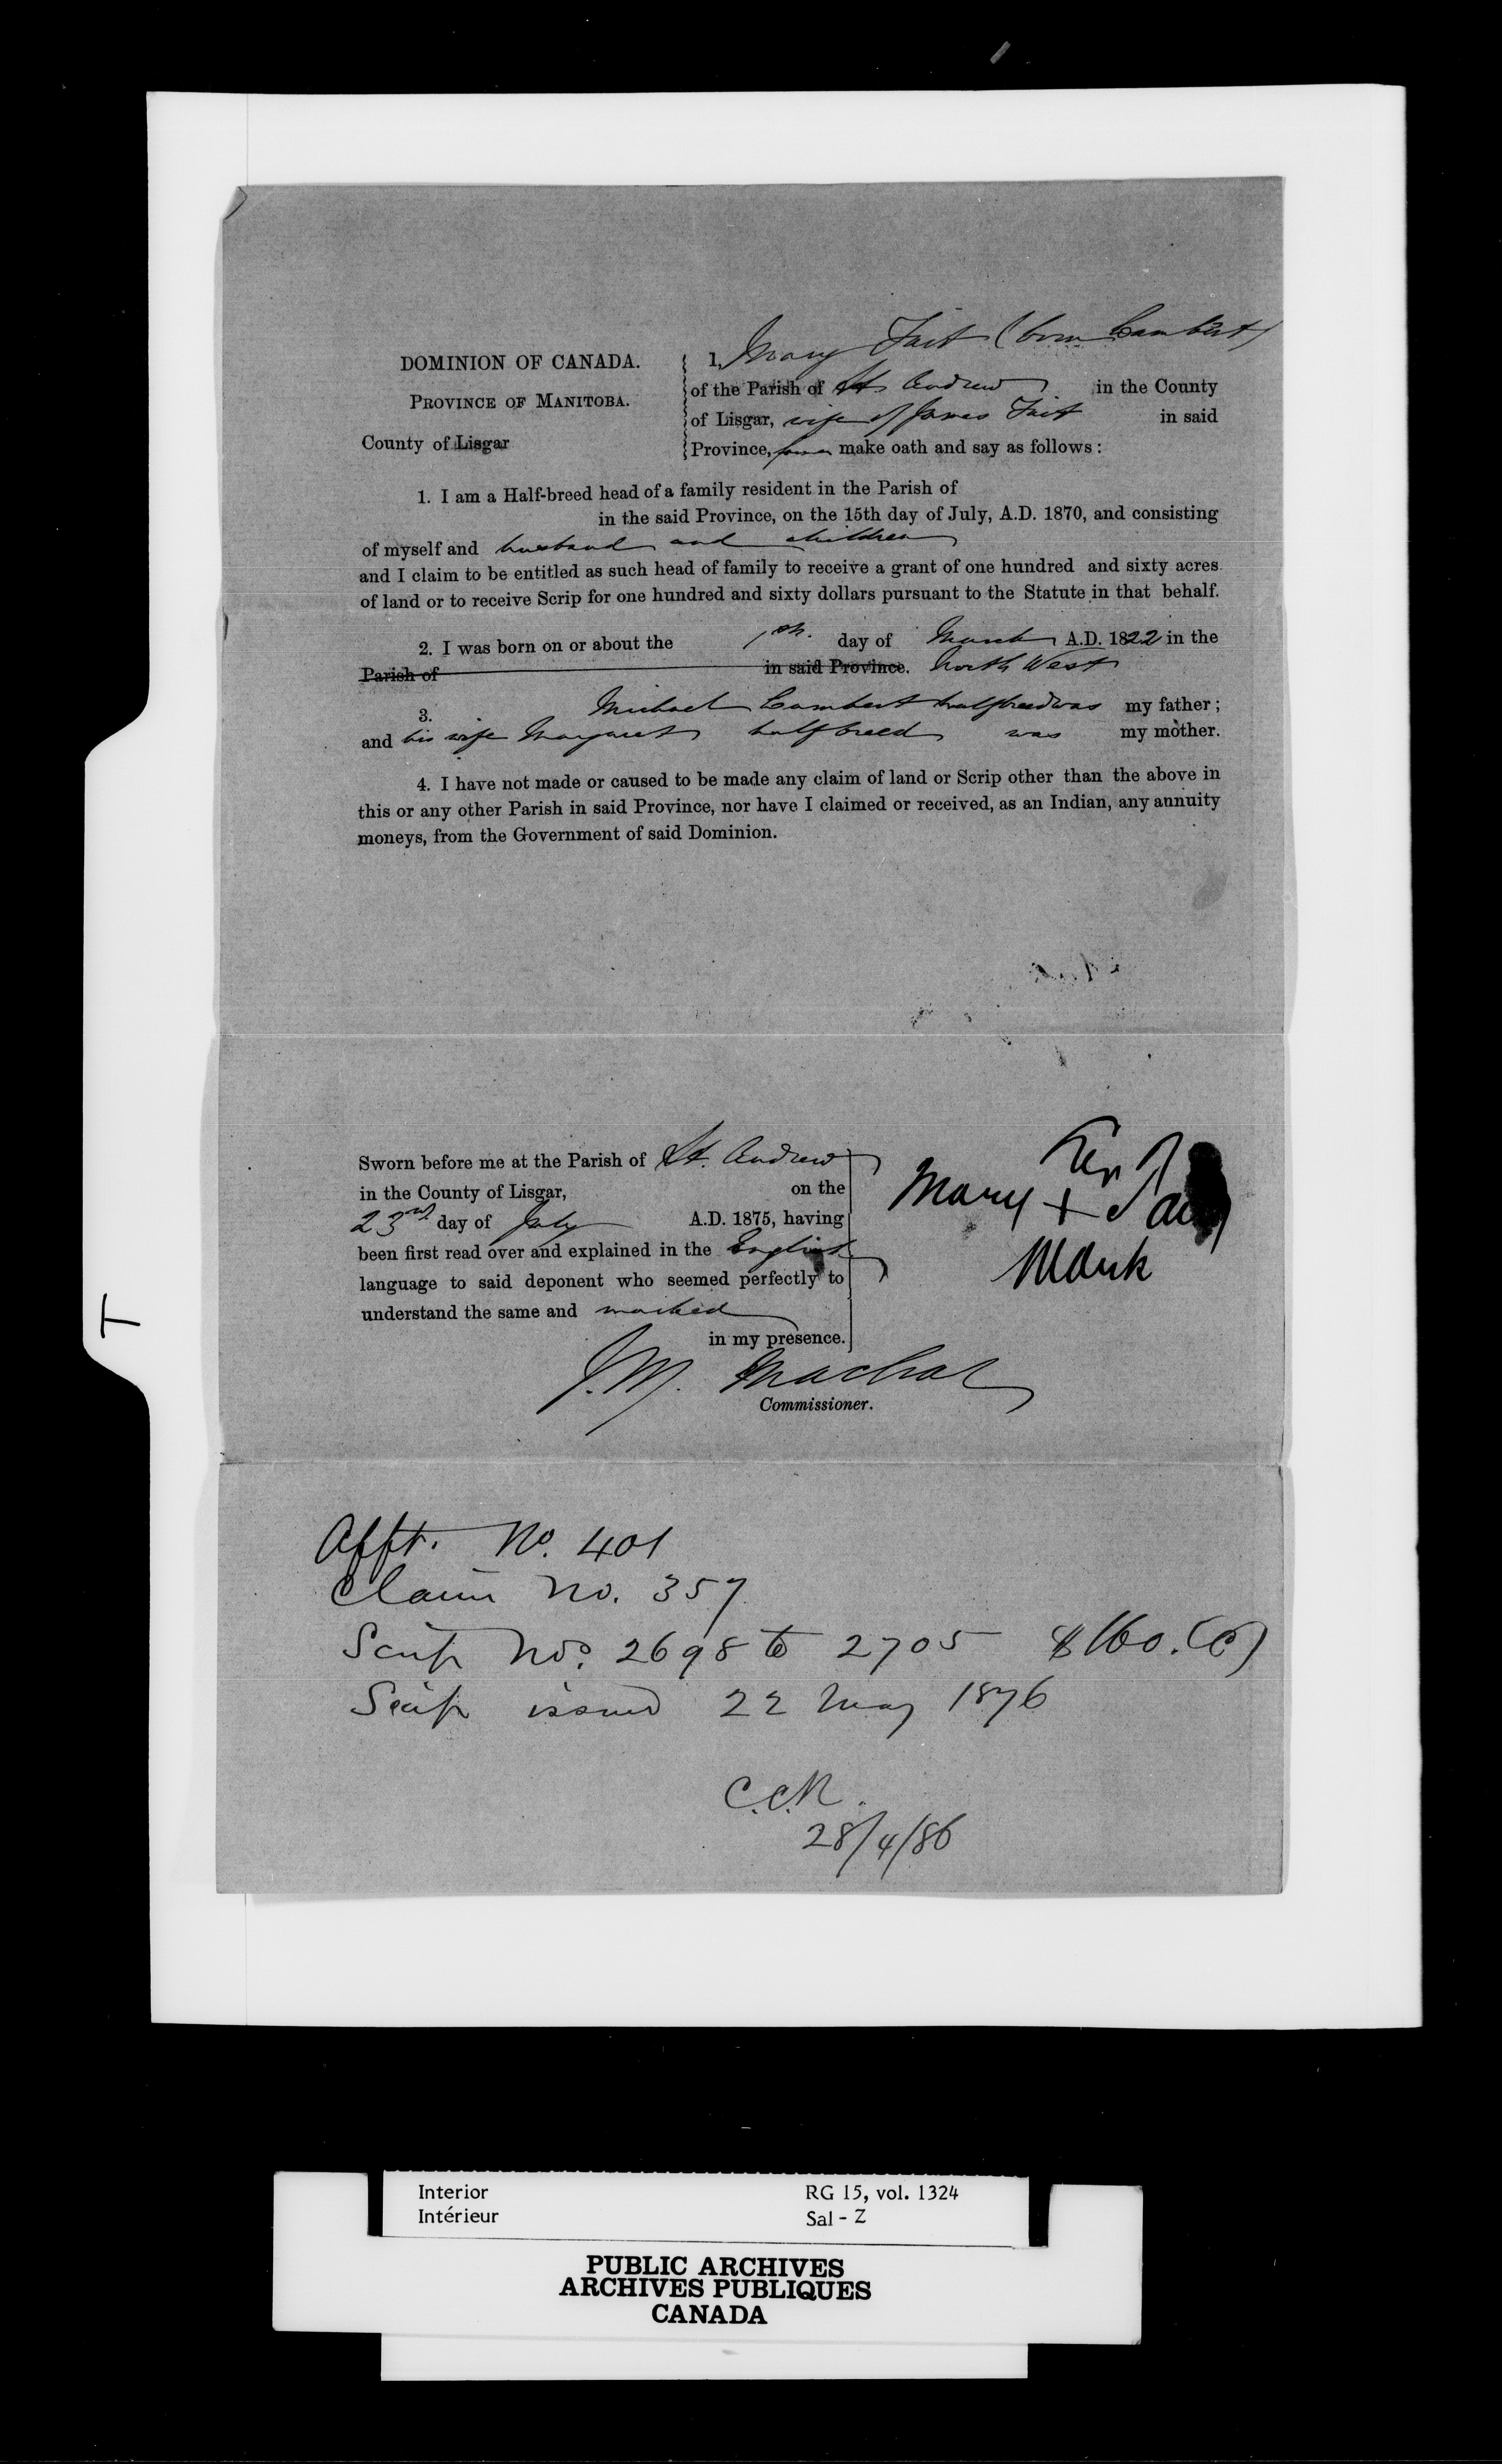 DOMINION OF CANADA.
PROVINCE OF MANITOBA.
County of Lisgar
I, Mary Tait (born Lambert)
of the Parish of St Andrew in the County
of Lisgar, wife of James Tait in said
Province, make oath and say as follows:
1. I am a Half-breed head of a family resident in the Parish of
in the said Province, on the 15th day of July, A.D. 1870, and consisting
of myself and husband and children
and I claim to be entitled as such head of family to receive a grant of one hundred and sixty acres
of land or to receive Scrip for one hundred and sixty dollars pursuant to the Statute in that behalf.
2. I was born on or about the day of March A.D. 1822 in the
Parish of in said Province. North West
3. Michael Lambert halfbreed was my father;
and his wife Margaret halfbreed was my mother.
4. I have not made or caused to be made any claim of land or Scrip other than the above in
this or any other Parish in said Province, nor have I claimed or received, as an Indian, any annuity
moneys, from the Government of said Dominion.
Sworn before me at the Parish of St. Andrew
in the County of Lisgar, on the
23rd day of July A.D. 1875, having
been first read over and explained in the English
language to said deponent who seemed perfectly to
understand the same and marked
in my presence.
her
Mary + Tait
Mark
J. M. Machar
Commissioner.
Afft. No. 401
Claim No. 357
Scrip Nos. 2698 to 2705 $160. (C)
Scrip issued 22 May 1876
28/4/86
T
Interior RG 15, vol. 1324
Intérieur Sal - Z
PUBLIC ARCHIVES
ARCHIVES PUBLIQUES
CANADA